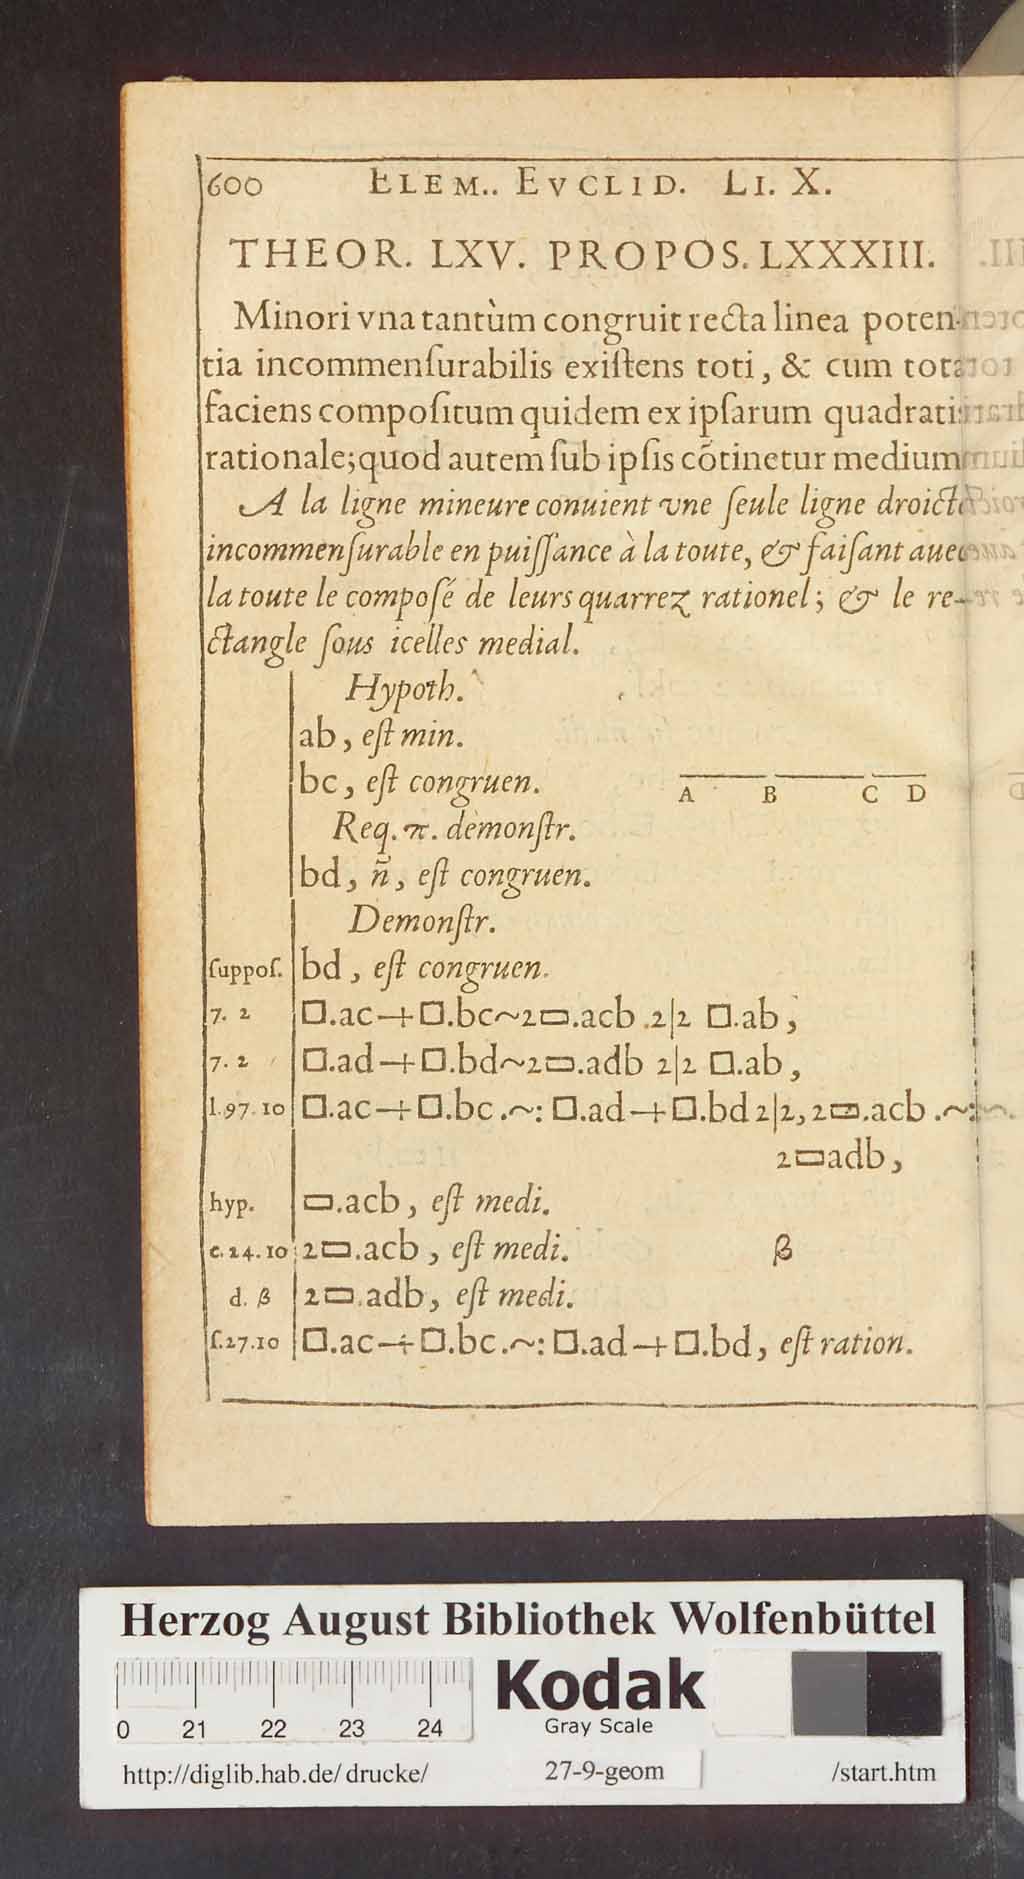 600 ELEM.. EVCLID. LI. X.
THEOR. LXV. PROPOS. LXXXIII.
Minori vna tantùm congruit recta linea poten-
tia incommenſurabilis exiſtens toti, & cum tota
faciens compoſitum quidem ex ipſarum quadratis
rationale; quod autem ſub ipſis cõtinetur medium
A la ligne mineure conuient vne ſeule ligne droicte
incommenſurable en puiſſance à la toute, & faiſant auec
la toute le compoſé de leurs quarrez rationel; & le re-
ctangle ſous icelles medial.
Hypoth.
ab, eſt min.
bc, eſt congruen.
A B C D
Req. π. demonſtr.
bd, ñ, eſt congruen.
Demonſtr.
ſuppoſ. bd, eſt congruen.
7. 2 □.ac+□.bc~2▭.acb 2|2 □.ab,
7. 2 □.ad+□.bd~2▭.adb 2|2 □.ab,
1.97.10 □.ac+□.bc.~: □.ad+□.bd 2|2, 2▭.acb.~:
2▭adb,
hyp. ▭.acb, eſt medi.
c.24.10 2▭.acb, eſt medi. β
d. β 2▭.adb, eſt medi.
ſ.27.10 □.ac+□.bc.~: □.ad+□.bd, eſt ration.
Herzog August Bibliothek Wolfenbüttel
Kodak
Gray Scale
0 21 22 23 24
http://diglib.hab.de/drucke/ 27-9-geom /start.htm